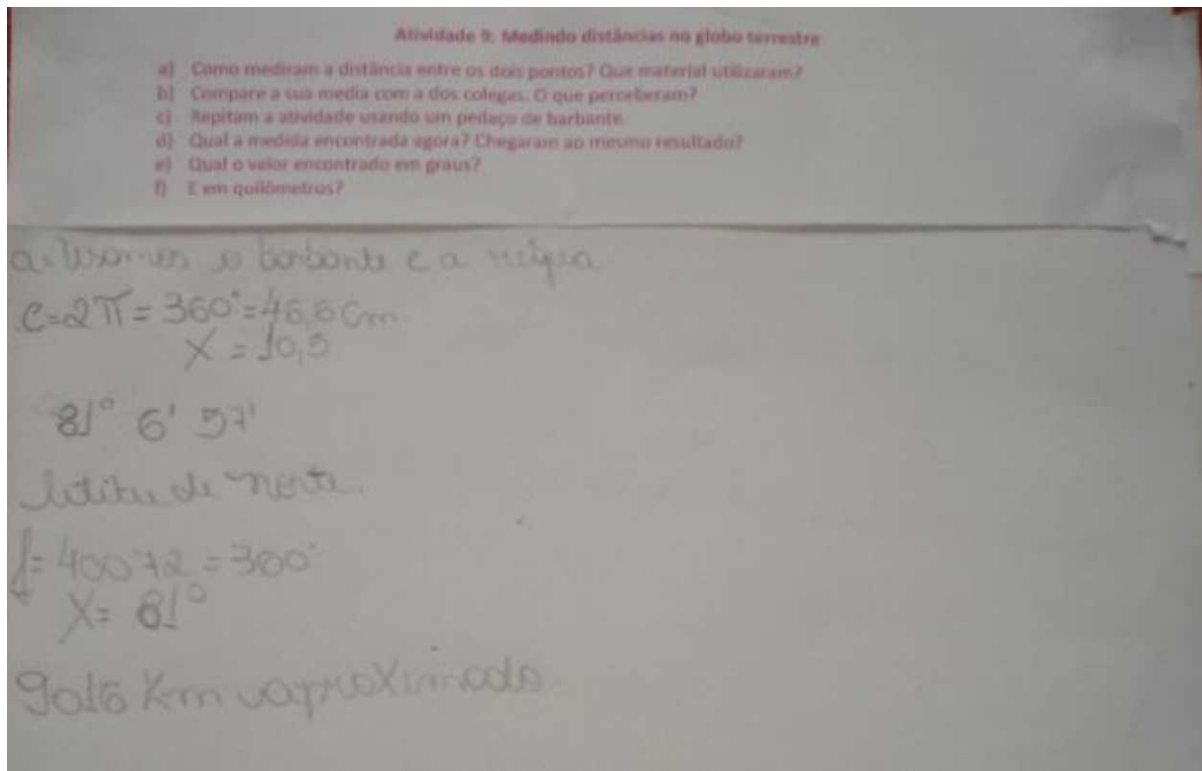 Atividade 9: Medindo distâncias no globo terrestre
a) Como mediram a distância entre os dois pontos? Que material utilizaram?
b) Compare a sua media com a dos colegas. O que perceberam?
c) Repitam a atividade usando um pedaço de barbante.
d) Qual a medida encontrada agora? Chegaram ao mesmo resultado?
e) Qual o valor encontrado em graus?
f) E em quilômetros?
a. Usamos o barbante e a régua
C=2π = 360°=46,6 cm
X = 10,5
81° 6' 57'
latitude norte.
f= 40072 = 360°
X= 81°
9016 Km aproximado